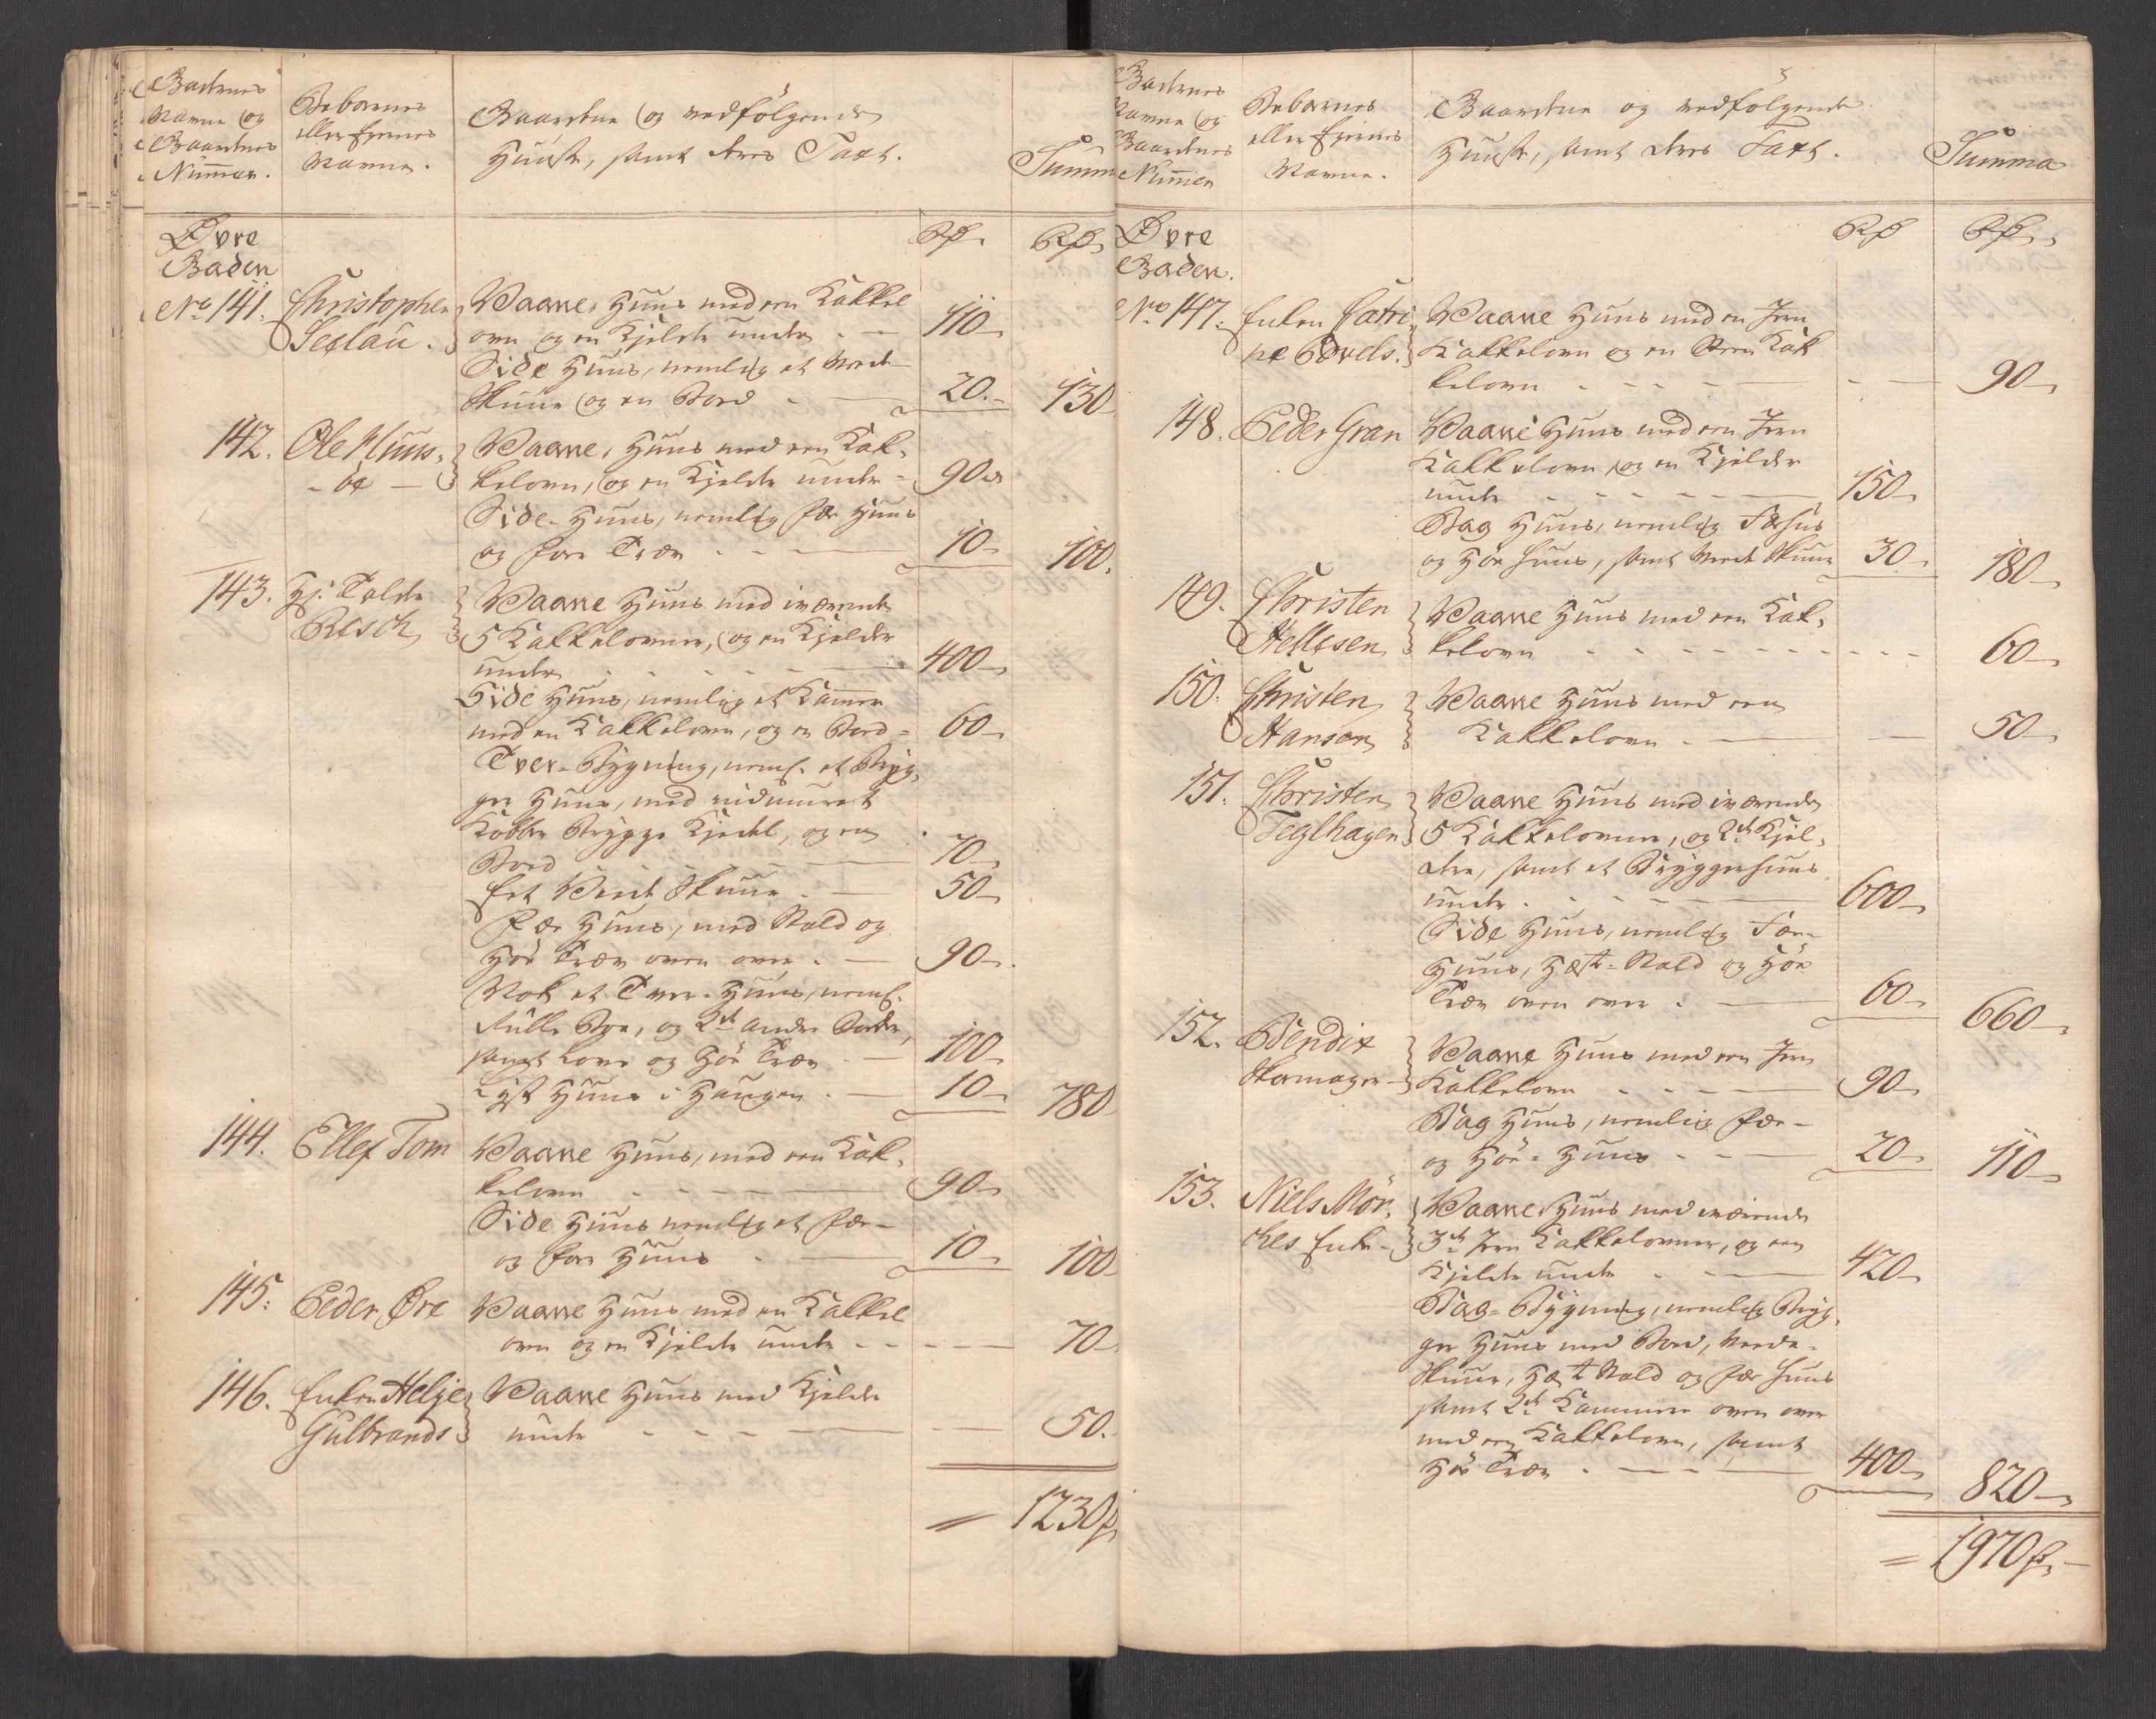 Gadernes
Navne og
Gaardenes
Nummer.
Beboernes
eller Eyernes
Navne.
Gaardene og vedfølgende
Huuse, samt deres Taxt.
Summ
Øvre
Gaden
Rd.
Rd.
No 141. Christopher
Seglau.
Vaane, Huus med een Kakkel
oven og en Kjelder under 110
Side Huus, nemlig et Væd
Skuur og en Boed 20. 130
142. Ole Muus
be
Vaane, Huus med een Kak-
kelovn, og en Kjelder under 90
Side-Huus, nemlig Fæe Huus
og Foer Træv 10 100.
143. Hr. Tolder
Resch
Vaane Huus med iværende
5 Kakkelovner, og en Kjelder
under 400
Side Huus, nemlig et Kammer
med en Kakkelovn, og en Boed 60
Tver-Bygning, neml. et Bryg-
ger Huus, med indmuuret
Kobber Brygge Kjedel, og en
Boed 70
Eet Væd Skuur 50
Fæe Huus, med Stald og
Høe Træv oven over 90
Nok et Tver-Huus, neml.
Rulle Boe, og 2de andre Boeder,
samt Love og Høe Træv 100
Lyst Huus i Haugen 10 780
144. Ellef Tom
Vaane Huus, med een Kak-
kelovn 90
Side Huus nemlig et Fæe-
og Foer Huus 10 100
145. Peder Øre
Vaane Huus med en Kakkel
oven og en Kjelder under 70
146. Enken Helje
Gulbrands
Vaane Huus med Kjelder
under 50.
1230
Gadernes
Navne og
Gaardenes
Nummer
Beboernes
eller Eyernes
Navne.
Gaardene og vedfølgende
Huuse, samt deres Taxt.
Summa
Øvre
Gaden.
Rd
Rd.
No 147. Enken Catri-
ne Povels.
Vaane Huus med en Jern
Kakkelovn og en Steen Kak
kelovn 90
148. Peder Gran
Vaane Huus med een Jern
Kakkelovn, og en Kjelder
under 150
Bag Huus, nemlig Fæhus
og Høe Huus, samt Væd Skuur 30 180
149. Christen
Hellesen
Vaane Huus med een Kak-
kelovn 60
150. Christen
Hanson
Vaane Huus med een
Kakkelovn 50
151. Christen
Teglhagen
Vaane Huus med iværende
5 Kakkelovner, og 2de Kjel-
dere, samt et Bryggerhuus
under 600
Side Huus, nemlig Fæe-
Huus, Hæst-Stald og Høe
Træv oven over 60 660
152. Bendix
Skomager
Vaane Huus med een Jern
Kakkelovn 90
Bag Huus, nemlig Fæe-
og Høe-Huus 20 110
153. Niels Mør-
ches Enke
Vaane Huus med iværende
3de Jern Kakkelovner, og een
Kjelder under 420
Bag-Bygning, nemlig Bryg-
ger Huus med Boed, Væde-
Skuur, Hæst Stald og Fæe Huus
samt 2de Kammere oven over
med een Kakkelovn, samt
Høe Træv 400 820
1970